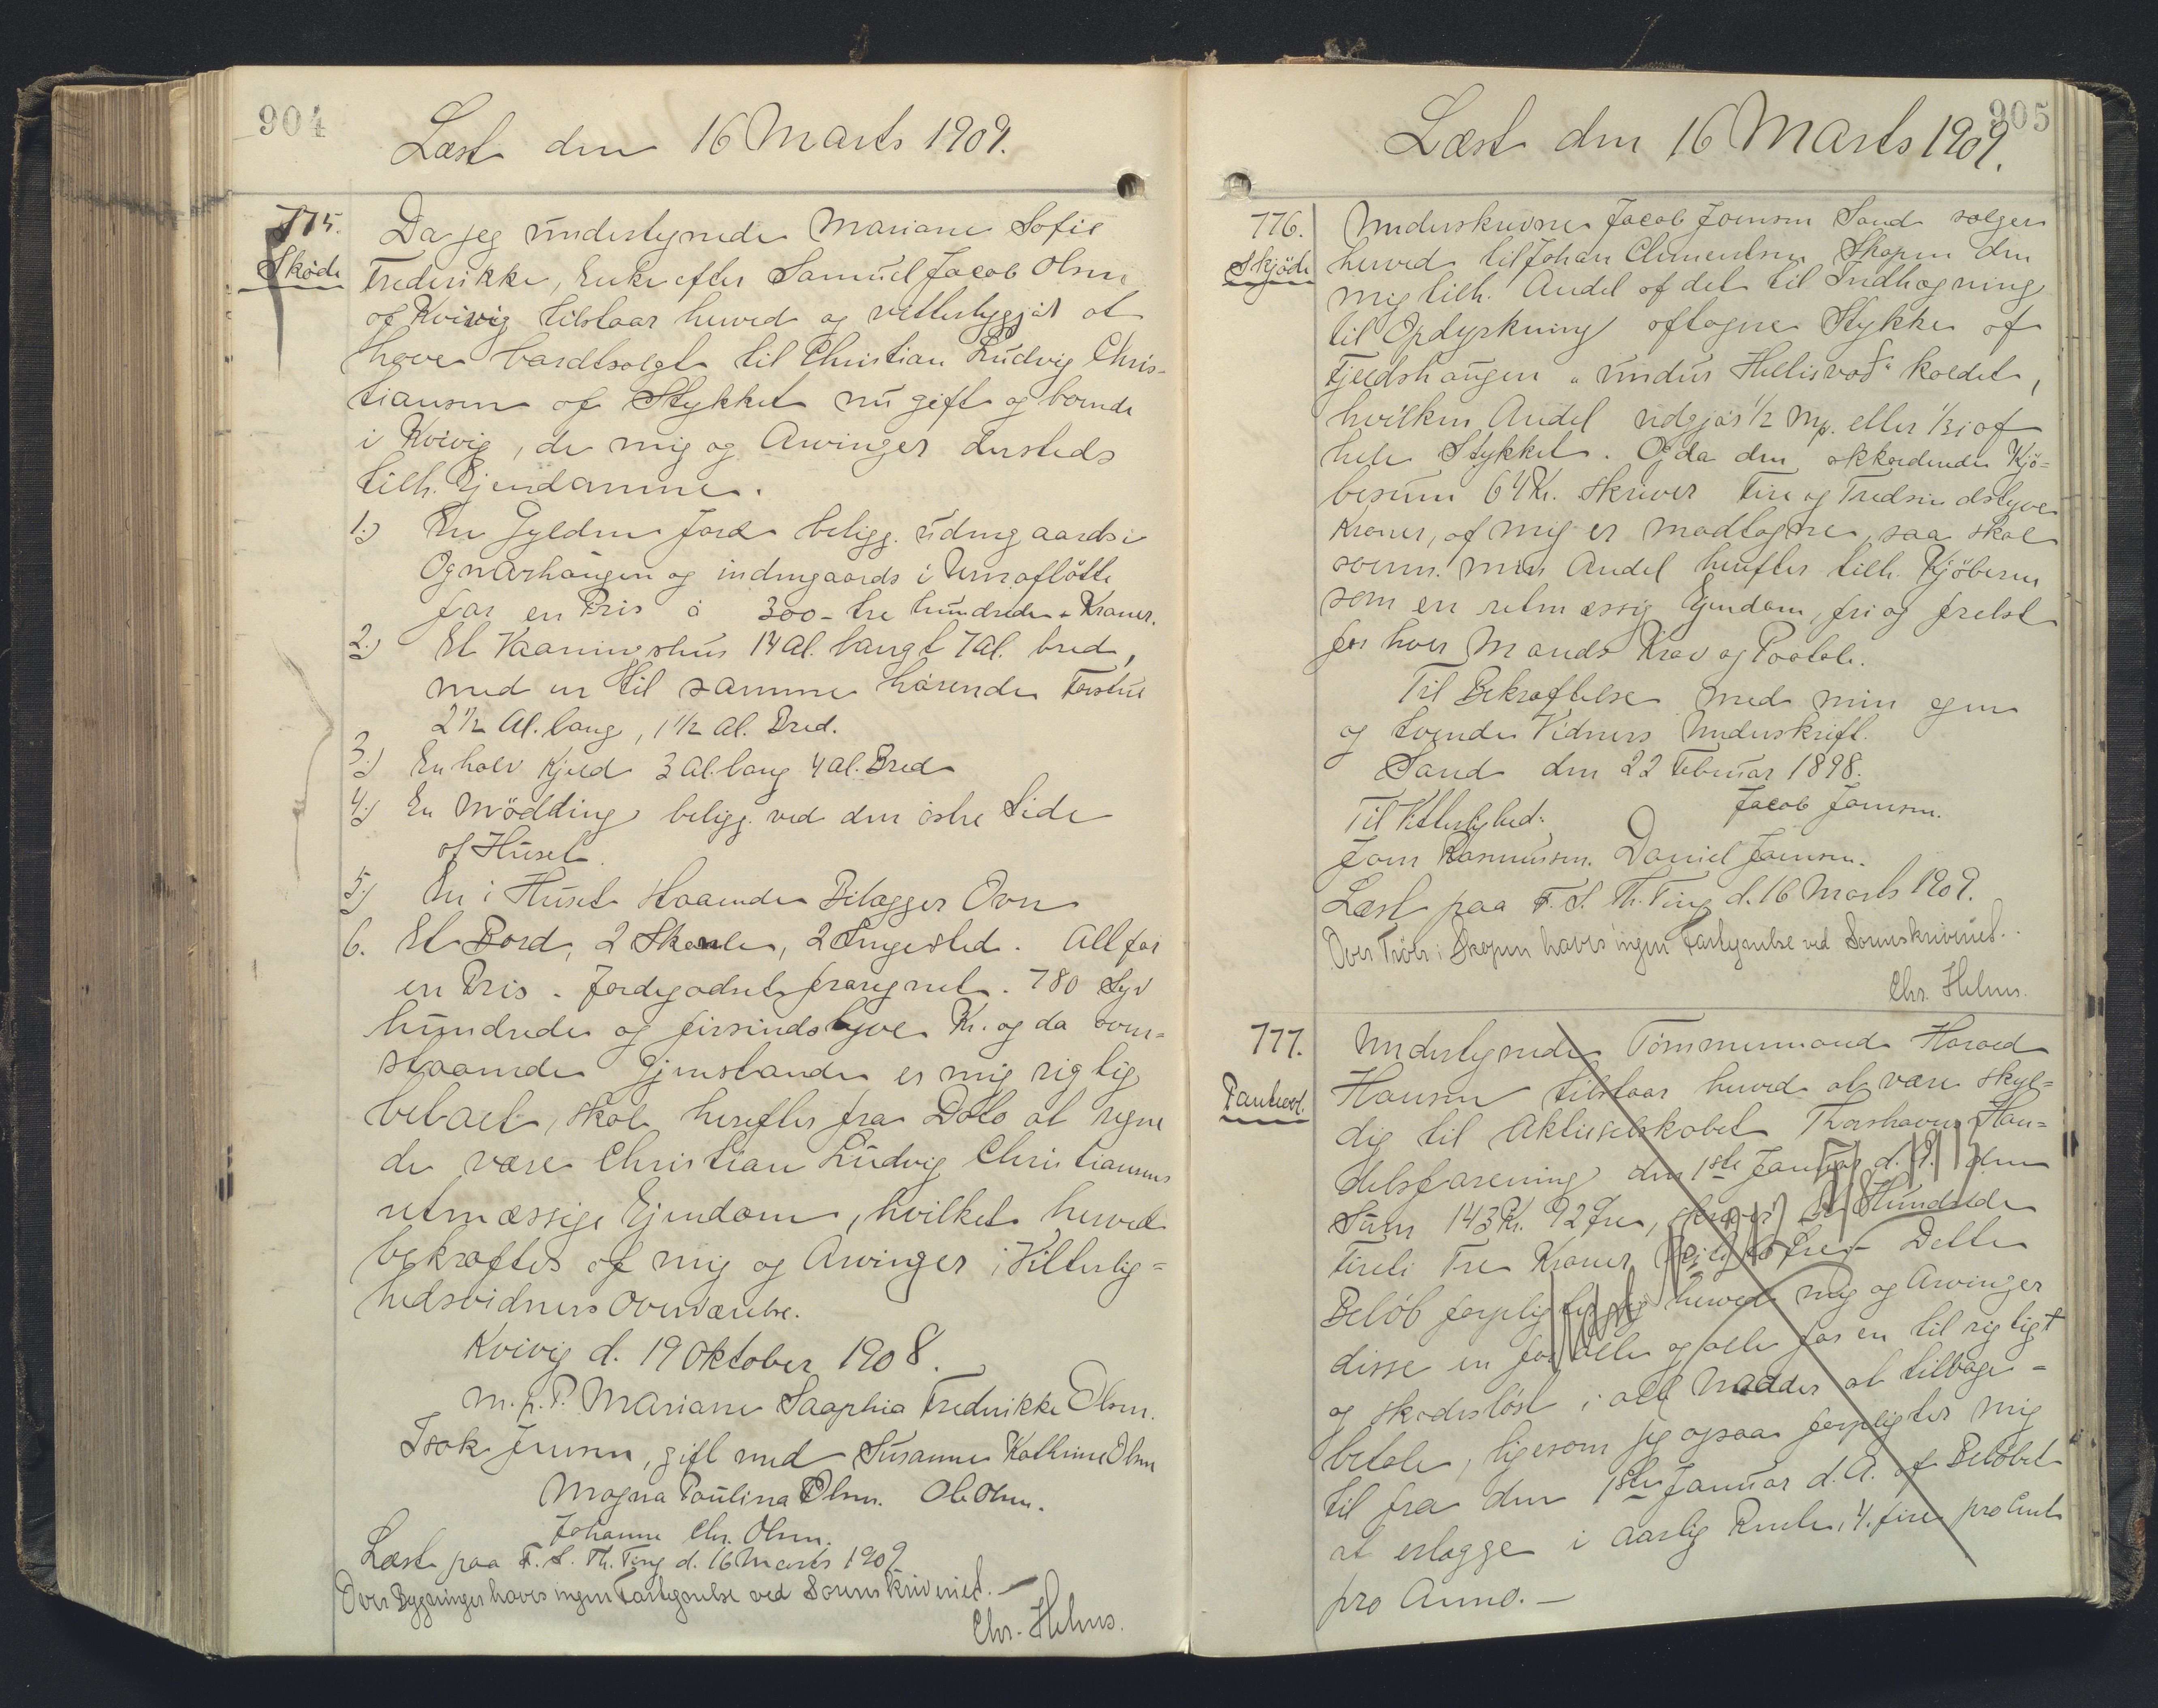 904
Læst den 16 Marts 1909.
775.
Skøde
Da jeg undertegnede Mariane Sofie
Frederikke, Enke efter Samuel Jacob Olsen
af Kvivig tilstaar herved og vitterliggjør at
have bordtsolgt til Christian Ludvig Chris-
tiansen af Stykket nu gift og boende
i Kvivig, de mig og Arvinger dersteds
tilh. Ejendomme.
1.) En Gylden Jord beligg. udengaards i
Ognarhaugen og indengaards i
for en Pris a 300 - tre hundrede - Kroner.
2.) Et Vaaningshus 14 Al. langt 7 Al. bred,
med en til samme hørende Forstue
2 1/2 Al. lang, 1 1/2 Al. Bred.
3.) En halv Kjeld 3 Al. lang 4 Al. Bred
4.) En Mødding beligg. ved den østre Side
af Huset.
5.) En i Huset staaende Bilægger Ovn
6. Et Bord, 2 Skamle, 2 Sengested. Alt for
en Pris - Jordegodset fraregnet. 780 Syv
hundrede og firsindstyve Kr. og da oven-
staaende Gjenstande er mig rigtig
betalt, skal herefter fra Dato at regne
de være Christian Ludvig Christiansens
retmæssige Ejendom, hvilket herved
bekræftes af mig og Arvinger i Vitterlig-
hedsvidners Overværelse.
Kvivig d. 19 Oktober 1908.
m. p. P. Mariane Saaphia Frederikke Olsen.
Isak Jensen, gift med Susanne Kathrine Olsen
Magna Paulina Olsen. Ole Olsen.
Johanne Chr. Olsen.
Læst paa F. S. Th. Ting d. 16 Marts 1909
Over Bygninger haves ingen Fortegnelse ved Sorenskriveriet. -
Chr. Helms.
905
Læst den 16 Marts 1909.
776.
Skjøde
Underskrevne Jacob Joensen Sand sælger
herved til Johan Clementsen Skopen den
mig tilh. Andel af det til Indhegning
til Opdyrkning aftagne Stykke af
Fjeldshaugen "undur Hellisvað" kaldet,
hvilken Andel udgjør 1/2 Mp. eller 1/31 af
hele Stykket. Og da den akkorderede Kjø-
besum 64 Kr. skriver Fire og Tredsindstyve
Kroner, af mig er modtagne, saa skal
ovenn. min Andel herefter tilh. Kjøberen
som en retmæssig Ejendom, fri og frelst
for hver Mands Krav og Paatale.
Til Bekræftelse med min egen
og tvende Vidners Underskrift.
Sand den 22 Februar 1898.
Jacob Joensen.
Til Vitterlighed:
Joen Rasmussen. Daniel Joensen.
Læst paa F. S. Th. Ting d. 16 Marts 1909.
Over Traer i Skopen haves ingen Fortegnelse ved Sorenskriveriet.
Chr. Helms.
777.
Panteobl.
Undertegnede Tømmermand Harald
Hansen tilstaar herved at være skyl-
dig til Aktieselskabet Thorshavns Han-
delsforening den 1ste Januar d. A. den
Sum 143 Kr. 92 Øre, skriver Et Hundrede
Firti Tre Kroner Øre - Dette
Beløb forpligter jeg herved mig og Arvinger
disse en for alle og alle for en til rigtigt
og skadesløst i alle Maader at tilbage-
betale, ligesom jeg ogsaa forpligter mig
til fra den 1ste Januar d. A. af Beløbet
at erlægge i aarlig Rente, 4. fire procent
pro Anno. -